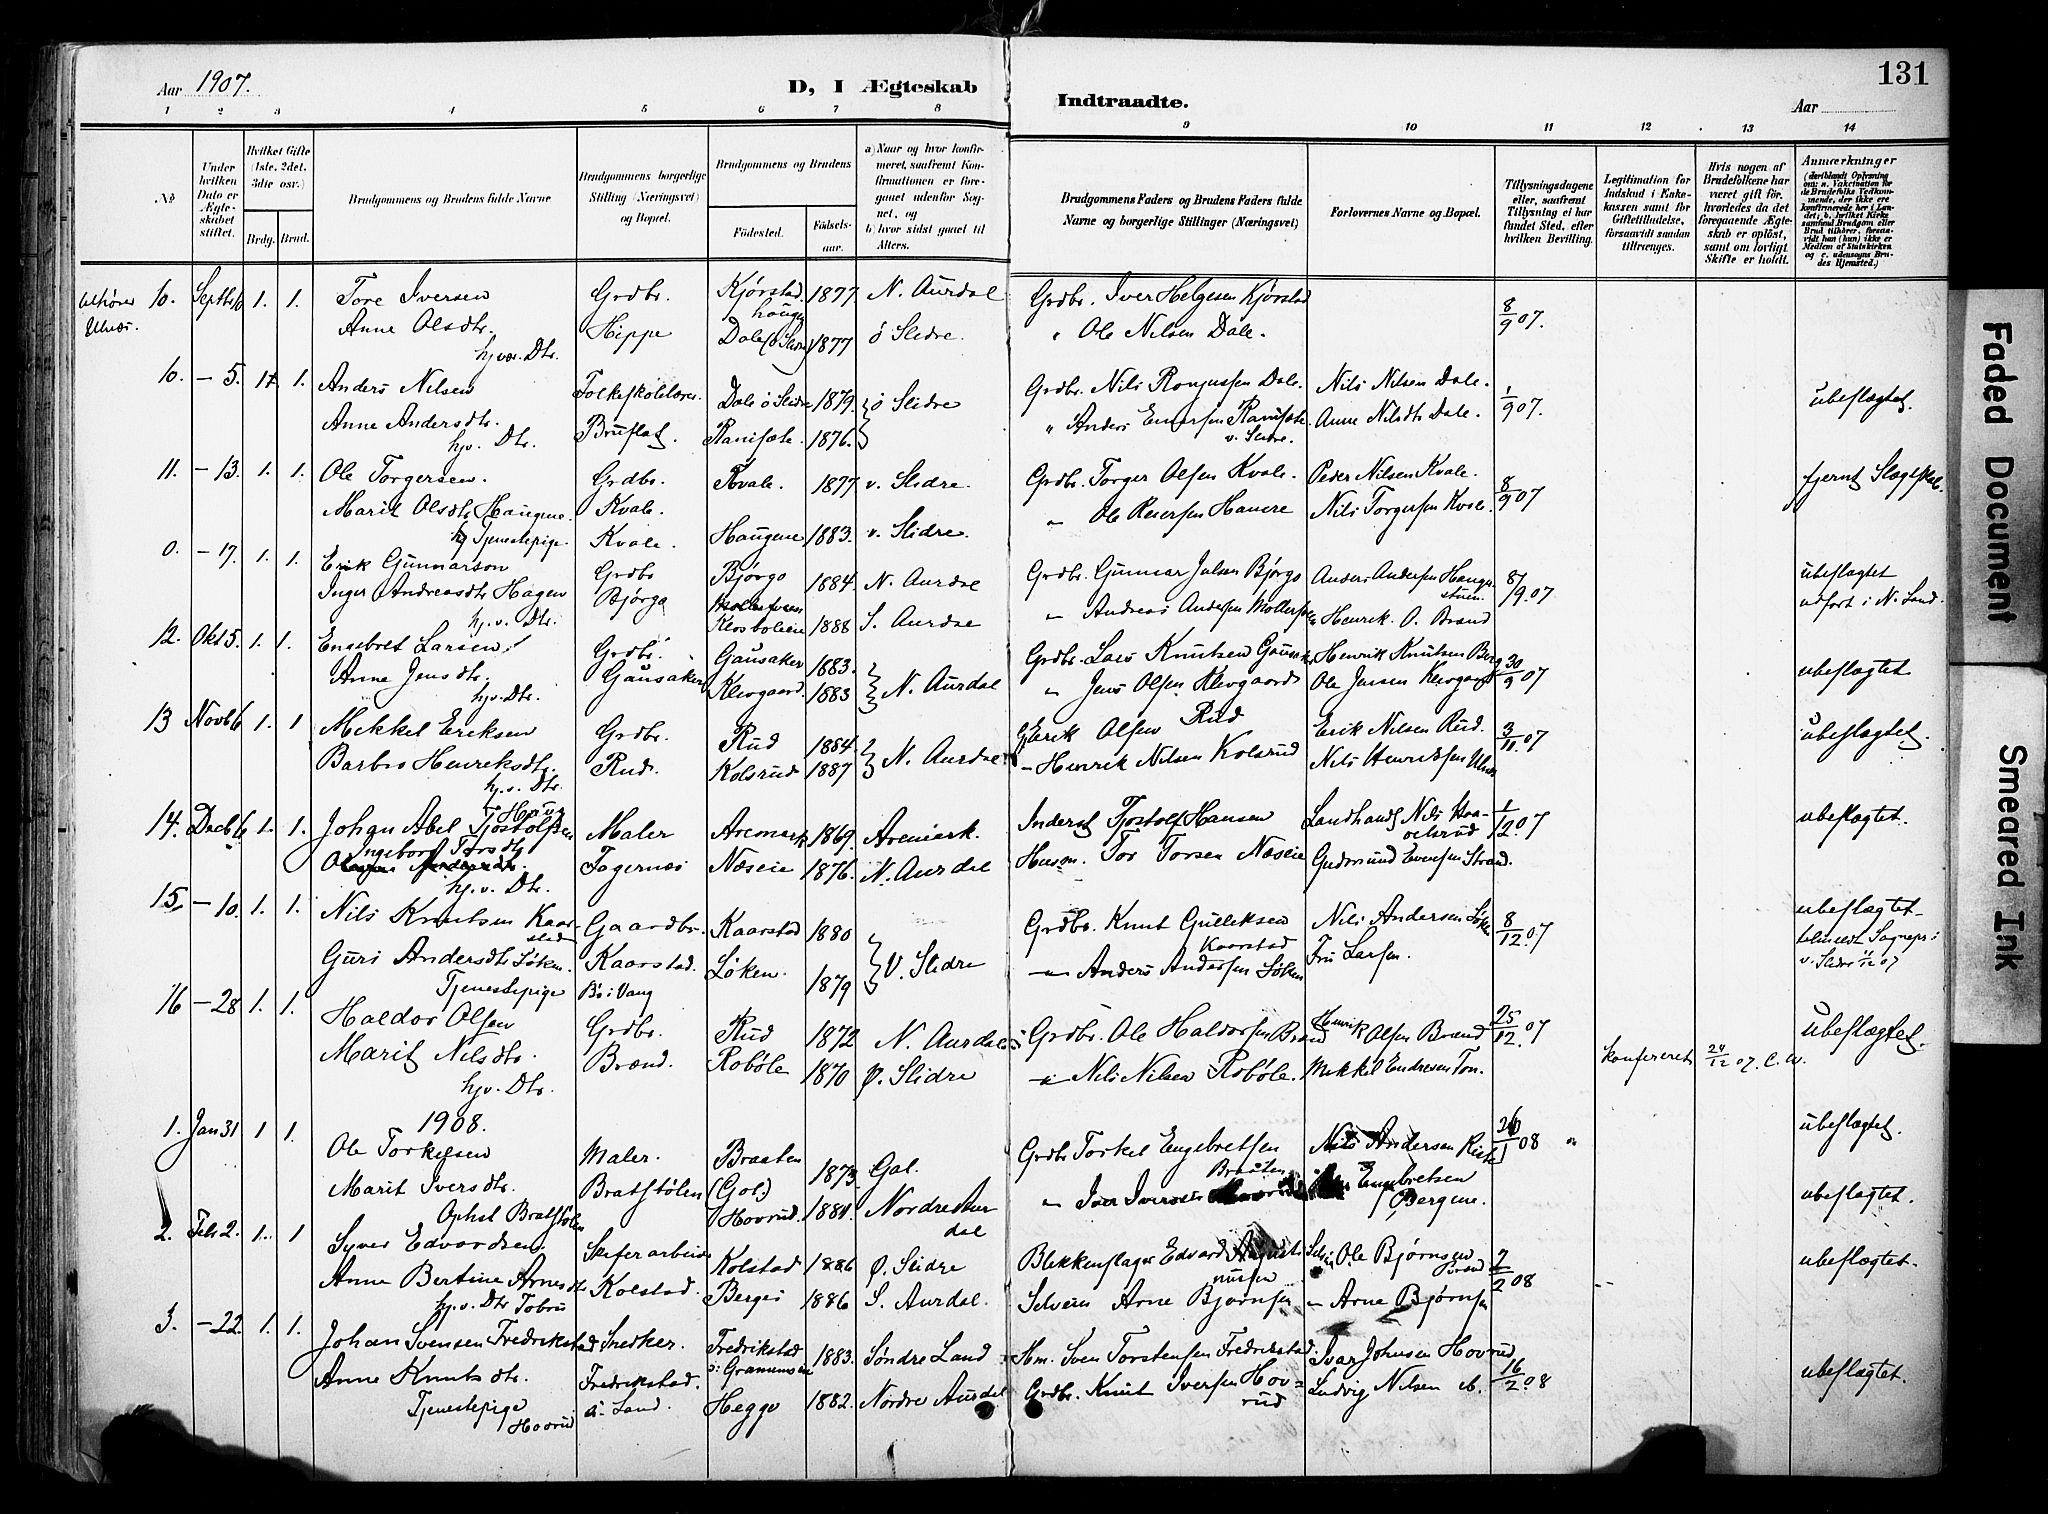 131
Aar 1907.
D, I Ægteskab Indtraadte.
Aar
1 2 3 4 5 6 7 8 9 10 11 12 13 14
№
Under hvilken Dato er Ægteskabet stiftet.
Hvilket Gifte (1ste, 2det, 3die osv.)
Brdg. Brud.
Brudgommens og Brudens fulde Navne
Brudgommens borgerlige Stilling (Næringsvei) og Bopæl.
Brudgommens og Brudens
Fødested. Fødselsaar.
a) Naar og hvor konfirmeret, saafremt Konfirmationen er foregaaet udenfor Sognet, og b) hvor sidst gaaet til Alters.
Brudgommens Faders og Brudens Faders fulde Navne og borgerlige Stillinger (Næringsvei)
Forlovernes Navne og Bopæl.
Tillysningsdagene eller, saafremt Tillysning ei har fundet Sted, efter hvilken Bevilling.
Legitimation for Indskud i Enkekassen samt for Giftetilladelse, forsaavidt saadan tiltrænges.
Hvis nogen af Brudefolkene har været gift før, hvorledes da det foregaaende Ægteskab er opløst, samt om lovligt Skifte er holdt.
Anmærkninger
10. Septbr 10 1. 1. Tore Iversen Grdbr. Kjørstad 1877 N. Aurdal Grdbr. Iver Helgesen Kjørstad 8/9 07.
Anne Olsdtr. Hippe Dale (ö Slidre) 1877 ö Slidre. " Ole Nilsen Dale.
10. – 5. 1. Anders Nilsen Folkeskolelærer Dale ö Slidre 1879. ö Slidre Grdbr. Nils Dale. Nils Nilsen Dale. 1/9 07. ubeslægtet.
Anne Andersdtr. hjv. Dtr. Bruflat. 1876. " Anders v. Slidre. Anne Nilsdtr Dale.
11. – 13. 1. 1. Ole Torgersen. Grdbr. Kvale. 1877 v. Slidre. Grdbr. Torger Olsen Kvale. Peder Nilsen Kvale. 8/9 07 fjernt Slægtskab.
Marit Olsdtr Haugene. Tjenestepige. Kvale. Haugene 1883. v. Slidre. " Ole Nils Torgersen Kvale.
0. – 17. 1. 1. Erik Gunnarson Grdbr Bjørgo 1884 N. Aurdal Grdbr. Gunnar Bjørgo Anders Andersen Haugstuen 8/9 07 ubeslægtet
Inger Andreasdtr Hagen hj. v. Dtr. Bjørgo 1888 S. Aurdal " Andreas Andersen Henrik O. Brænd udført i N. Land.
12. Okt 5. 1. 1. Engebret Larsen Grdbr. Gausaker 1883. N. Aurdal Grdbr. Lars Knutsen Gausaker Henrik Knutsen Berg 30/9 07 ubeslægtet
Anne Jensdtr. hjv. Dtr. Gausaker Klevgaard. 1883 " Jens Olsen Klevgaard Ole Jensen Klevgaard
13 Novb 6 1. 1 Mikkel Eriksen Grdbr. Rud 1884. N. Aurdal Erik Olsen Rud Erik Nilsen Rud. 3/11 07 ubeslægtet.
Barbro Henriksdtr. hj. v. Dtr. Rud. Kolsrud 1887 – Henrik Nilsen Kolsrud Nils Henriksen
14. Decb 6 1. 1. Johan Abel Tjostolfsen Maler Aremark 1869. Aremark. Inderst Tjostolf Hansen Landhandl Nils 1/12 07 ubeslægtet.
Ingeborg Torsdtr hj. v. Dtr. Fagernæs Næseie 1876. N. Aurdal Husm. Tor Torsen Næseie Gudmund Evensen Strand.
15. – 10. 1. 1. Nils Knutsen Kaarstad Gaardbr. Kaarstad 1880 V. Slidre Grdbr. Knut Gulleksen Kaarstad Nils Andersen Løken 8/12 07 ubeslægtet
Guri Andersdtr Løken. Tjenestepige Kaarstad. Løken. 1879 – Anders Andersen Løken Larsen. v. Slidre 11/12 07
16 – 28 1. 1. Haldor Olsen Grdbr. Rud 1872 N. Aurdal Grdbr. Ole Haldorsen Brænd Henrik Olsen Brænd 25/12. 07 ubeslægtet.
Marit Nilsdtr. hjv. Dtr. Brænd. Robøle 1870 Ø. Slidre – Nils Nilsen Robøle. Mikkel Endresen Ton. konfereret 24/12 07. C. W.
1908.
1. Jan 31 1 1. Ole Torkelsen Maler. Braaten (Gol.) 1873 Gol. Grdbr Torkel Engebretsen Braaten Nils Andersen 26/1 08 ubeslægtet.
Marit Iversdtr. Ophst Bratstølen Bratstølen Hovrud. 1884. Nordre Aurdal " Iver Iversen Engebretsen Bergene. ubeslægtet.
2. Feb 2. 1. 1 Syver Edvardsen Skiferarbeider Kolstad 1886 Ø. Slidre Blikkenslager Edvard Ole Bjørnsen 2/2 08 ubeslægtet.
Anne Bertine Arnesdtr hj. v. Dtr Kolstad. 1886 S. Aurdal. Selveier Arne Bjørnsen – Arne Bjørnsen
3. – 22. 1. 1. Johan Svensen Fredrikstad Snedker. Fredrikstad 1883. Søndre Land Hm. Sven Torstensen Fredrikstad. Ivar Johnsen Hovrud 16/2 08 ubeslægtet.
Anne Knutsdtr. Tjenestepige Hovrud Fredrikstad. Land. Hegge 1882. Nordre Aurdal Grdbr. Knut Iversen Hovrud Ludvig Nilsen
Faded Document
Smeared Ink